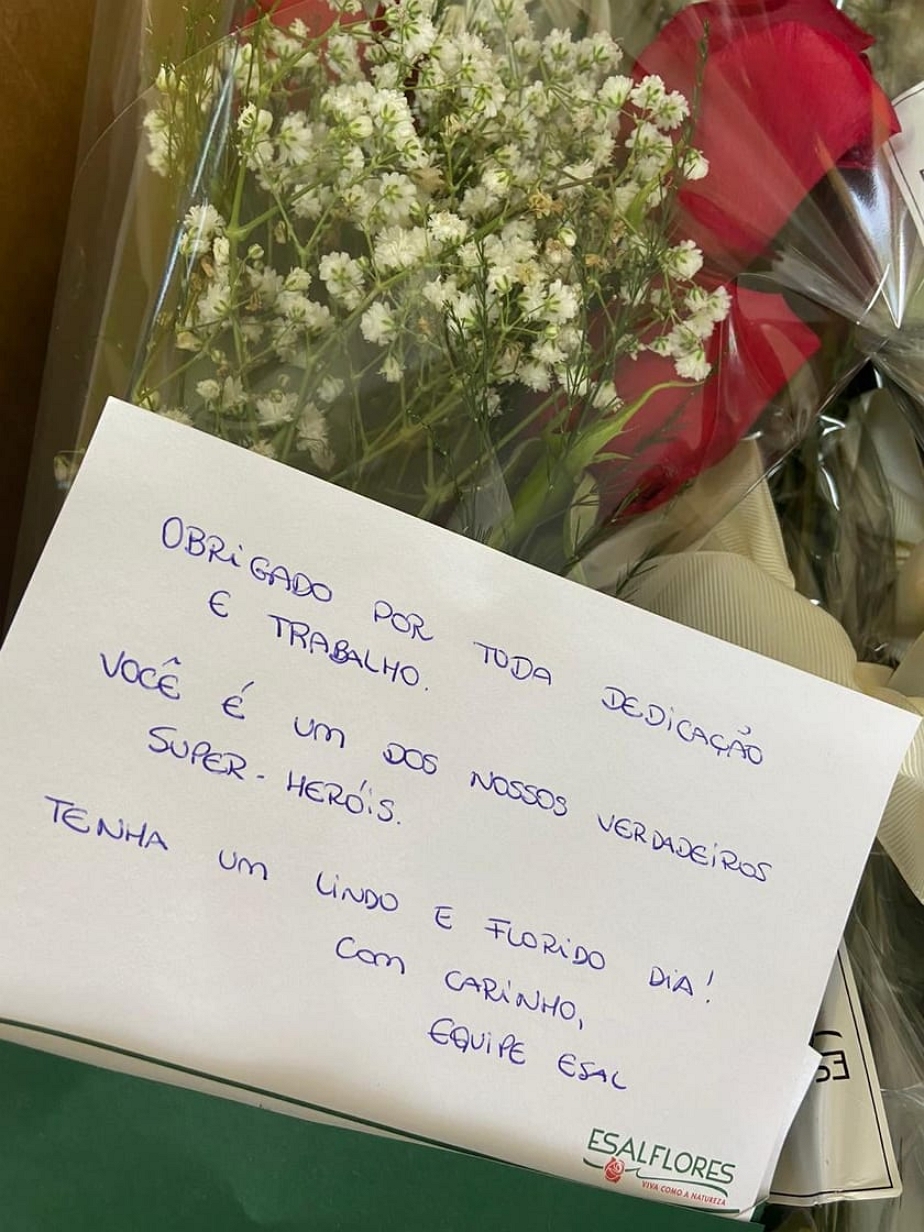 OBRIGADO POR TODA DEDICAÇÃO
E TRABALHO.
VOCÊ É UM DOS NOSSOS VERDADEIROS
SUPER-HERÓIS.
TENHA UM LINDO E FLORIDO DIA!
COM CARINHO,
EQUIPE ESAL
ESALFLORES
VIVA COMO A NATUREZA
ES